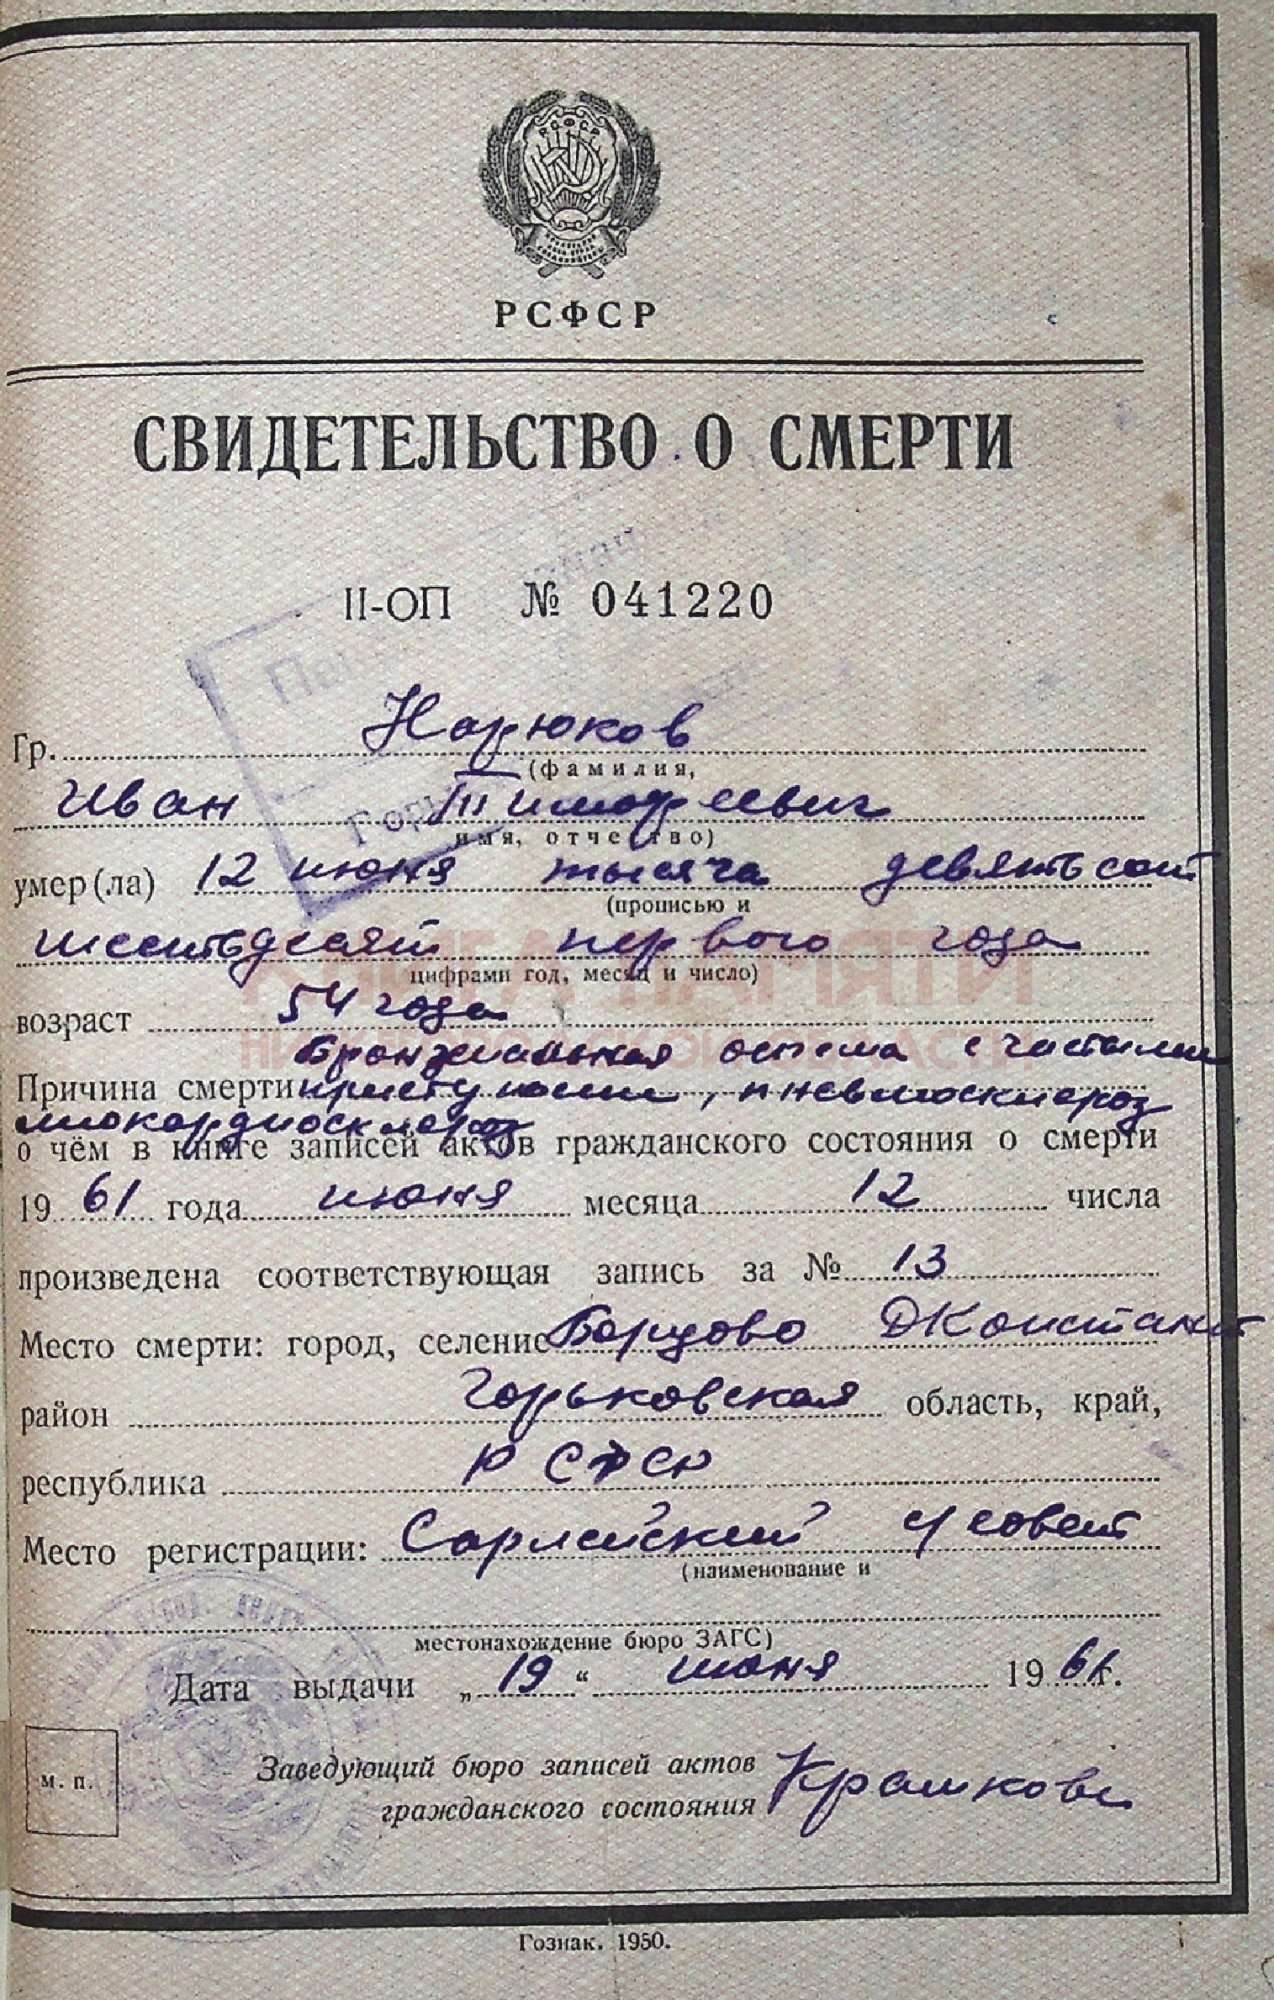 РСФСР
РСФСР
СВИДЕТЕЛЬСТВО О СМЕРТИ
II-ОП № 041220
Гр. Нарюков
(фамилия,
Иван Тимофеевич
имя, отчество)
умер(ла) 12 июня тысяча девятьсот
(прописью и
шестьдесят первого года
цифрами год, месяц и число)
возраст 54 года
КНИГА ПАМЯТИ
НИЖЕГОРОДСКОЙ ОБЛАСТИ
бронхиальная астма с частыми
Причина смерти приступами, пневмосклероз
миокардиосклероз
о чём в книге записей актов гражданского состояния о смерти
19 61 года июня месяца 12 числа
произведена соответствующая запись за № 13
Место смерти: город, селение Борцово ДКонстант
район Горьковская область, край,
республика РСФСР
Место регистрации: Сарлейский с/совет
(наименование и
местонахождение бюро ЗАГС)
Дата выдачи „ 19 “ июня 19 61 г.
м. п.
Заведующий бюро записей актов
гражданского состояния
Гознак. 1950.